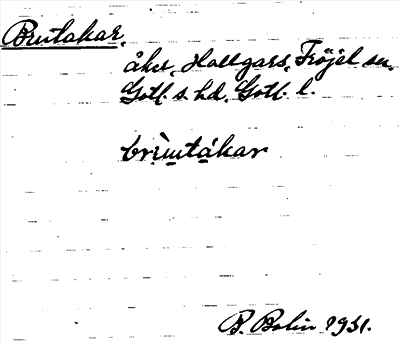 Brutakar,
åker, Hallgars, Fröjel sn,
Gotl. s. hd, Gotl. l.
brùtákar
B. Bolin 1931.